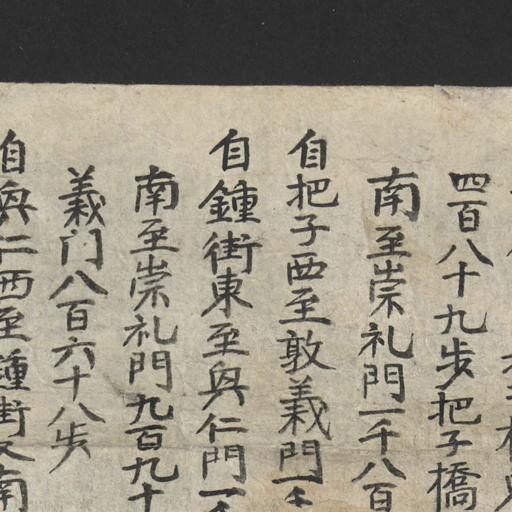 四百八十九步把子橋
南至崇礼門一千八百
自把子西至敦義門一千
自鍾街東至與仁門一千
南至崇礼門九百九十
義门八百六十八步
自與仁西至鍾街又南